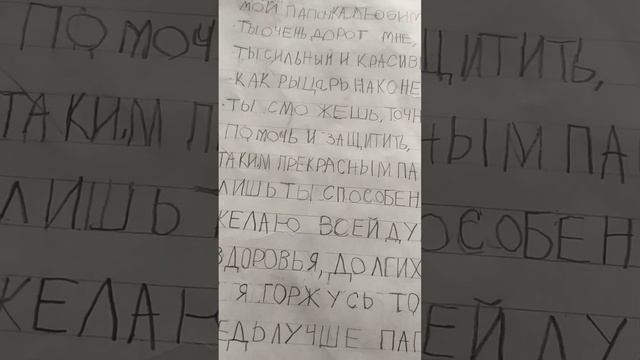 МОЙ ПАПОЧКА ЛЮБИМ
ТЫ ОЧЕНЬ ДОРОГ МНЕ,
ТЫ СИЛЬНЫЙ И КРАСИВ
КАК РЫЦАРЬ НА КОНЕ
ТЫ СМОЖЕШЬ, ТОЧН
ПОМОЧЬ И ЗАЩИТИТЬ,
ТАКИМ ПРЕКРАСНЫМ ПА
ЛИШЬ ТЫ СПОСОБЕН
ЖЕЛАЮ ВСЕЙ ДУ
ЗДОРОВЬЯ, ДОЛГИХ
Я ГОРЖУСЬ ТО
ЕДЬ ЛУЧШЕ ПАП